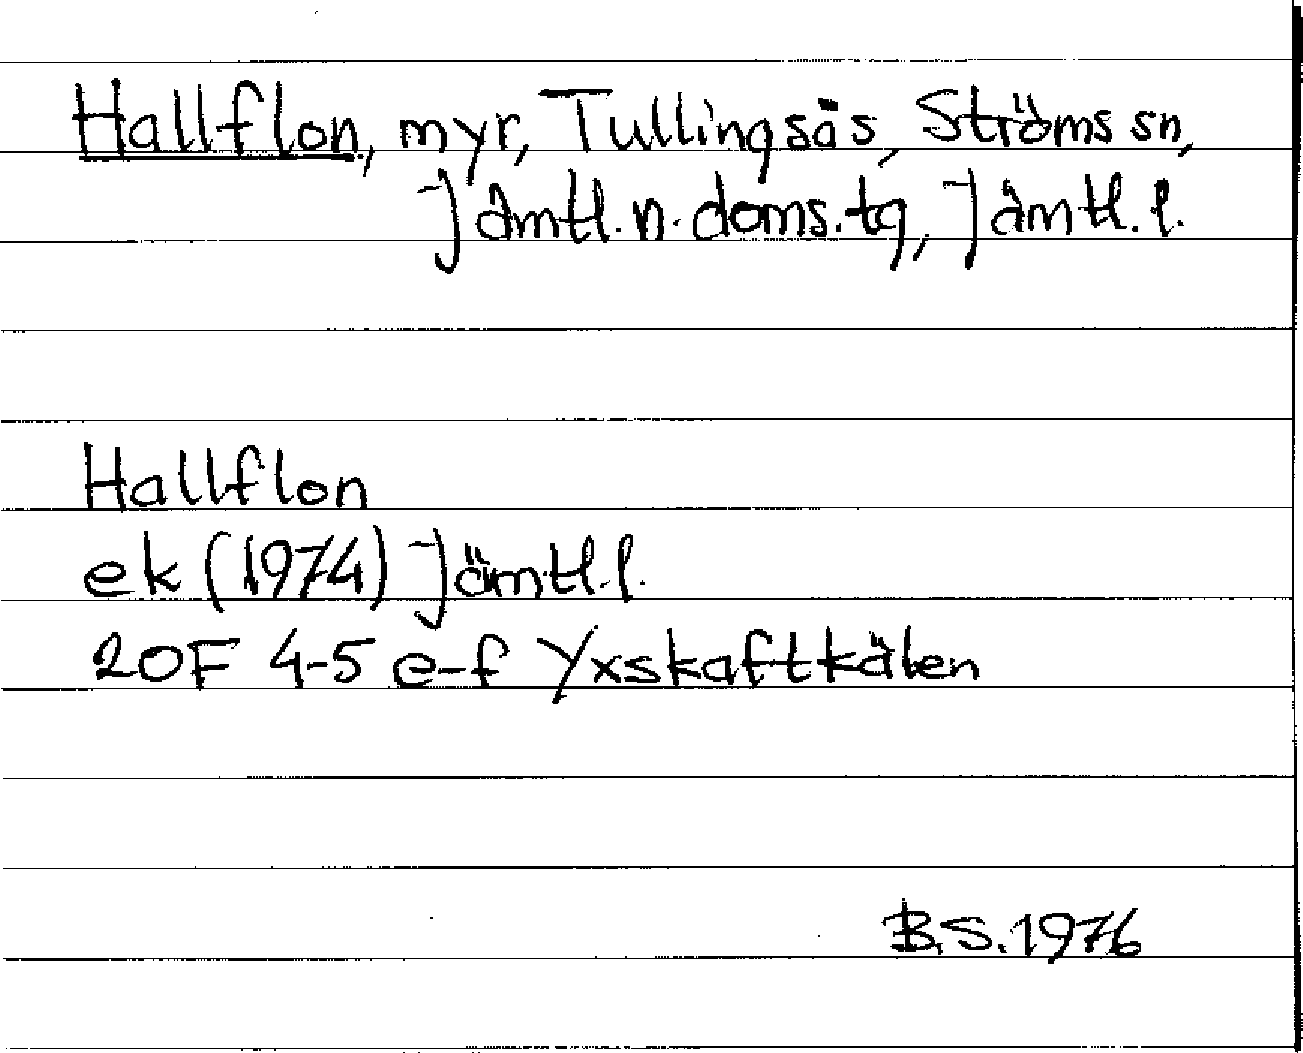 Hallflon, myr, Tullingsås, Ströms sn,
Jämtl. n. doms. tg, Jämtl. l.
Hallflon
ek (1974) Jämtl. l.
20F 4-5 e-f Yxskaftkälen
B.S. 1976